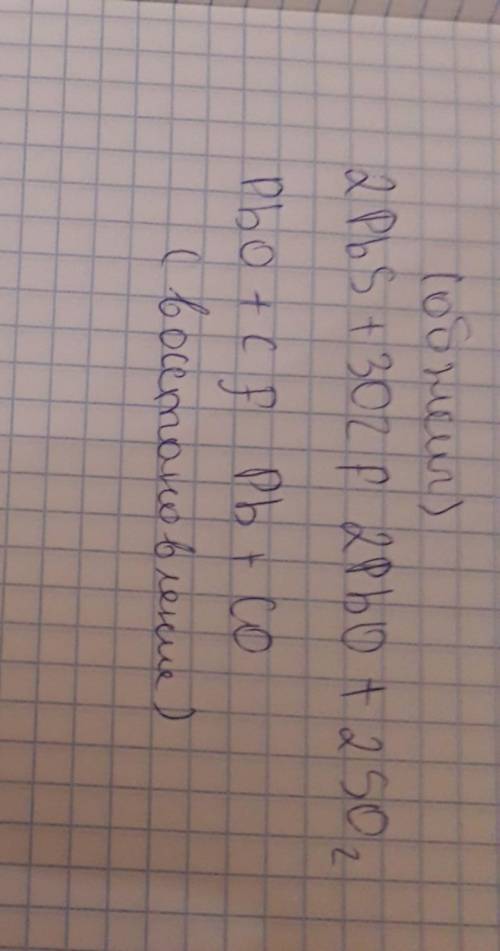 (обжиг)
2PbS + 3O2 f 2PbO + 2SO2
PbO + C f Pb + CO
(восстановление)